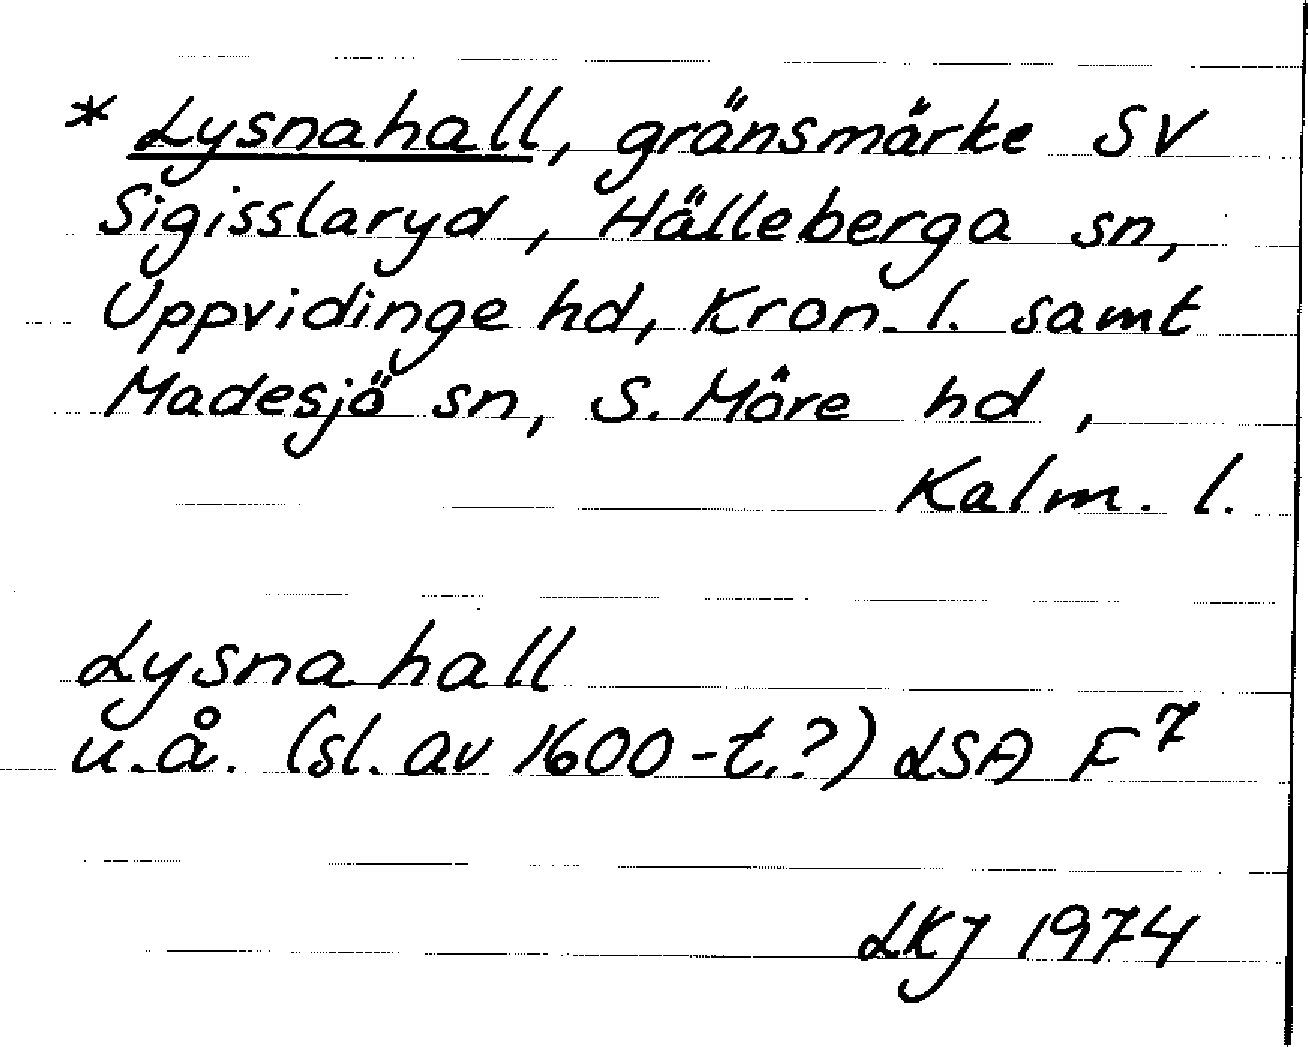 * Lysnahall, gränsmärke SV
Sigisslaryd, Hälleberga sn,
Uppvidinge hd, Kron. l. samt
Madesjö sn, S. Möre hd,
Kalm. l.
Lysnahall
u.å. (sl. av 1600-t.?) LSA F⁷
LKJ 1974